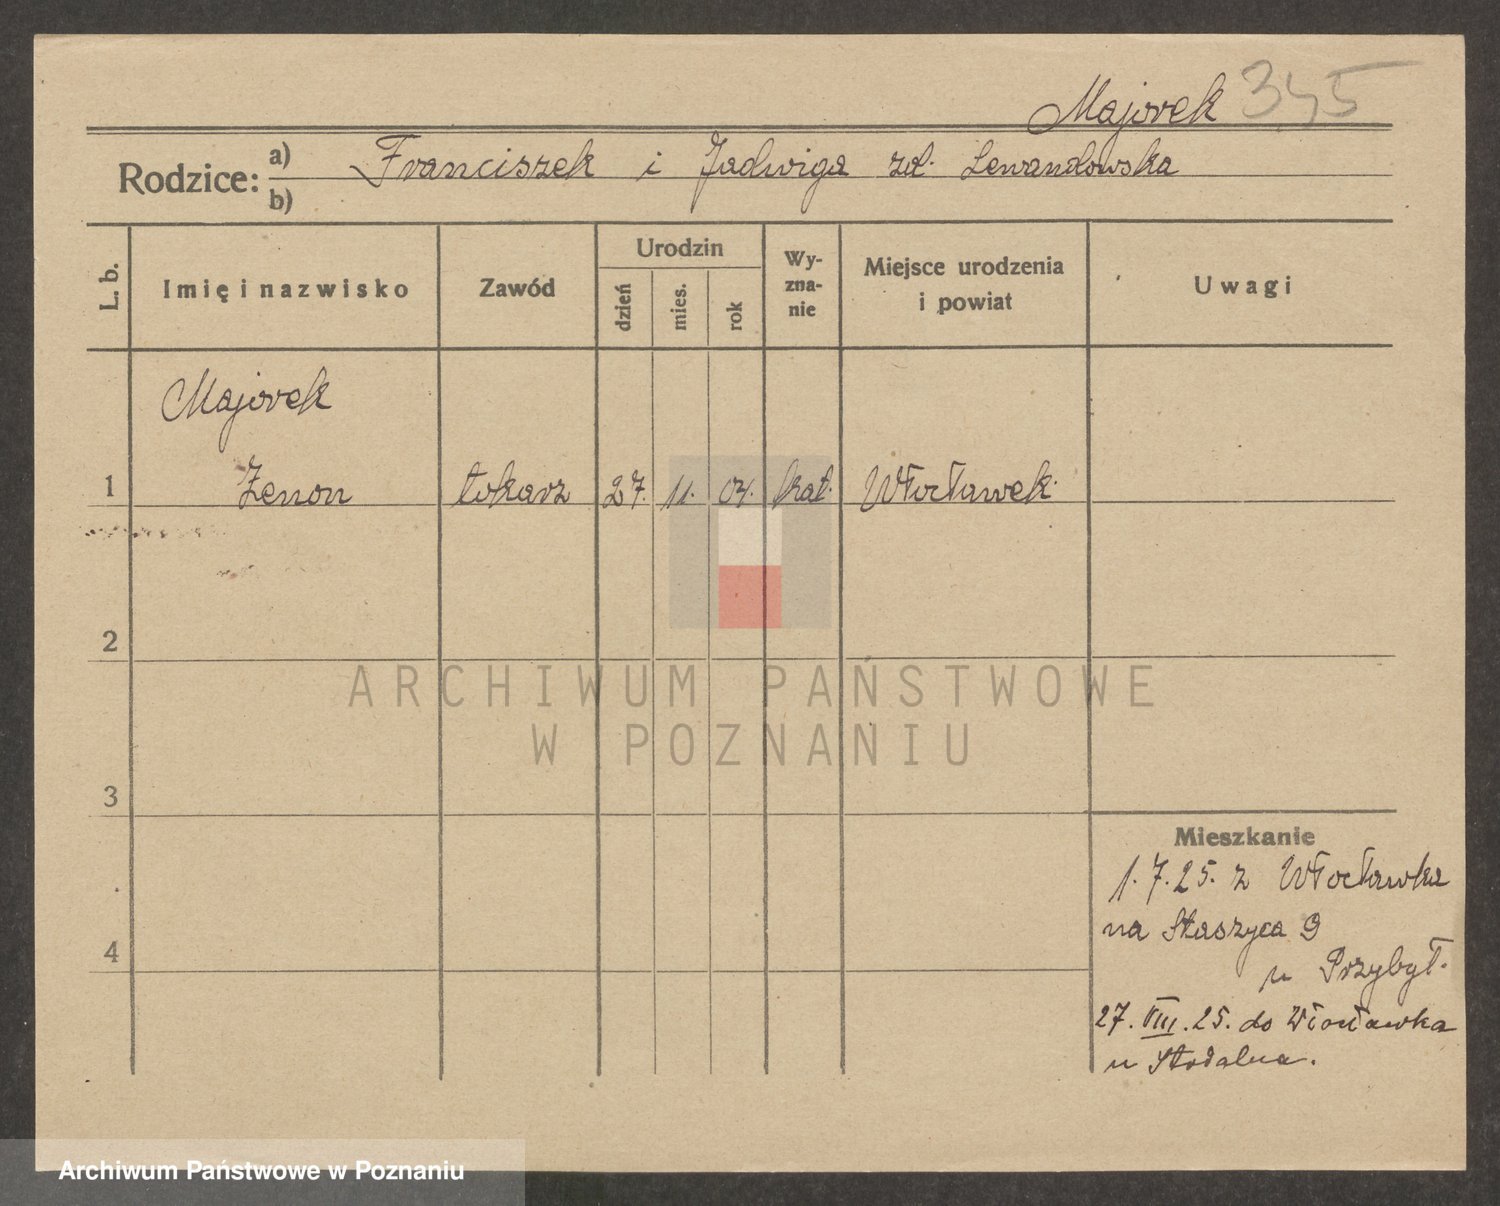 Majorek 345
Rodzice: a) Franciszek i Jadwiga zd. Lewandowska
b)
L. b.
Imię i nazwisko
Zawód
Urodzin
dzień
mies.
rok
Wy-
zna-
nie
Miejsce urodzenia
i powiat
Uwagi
Majorek
1 Zenon tokarz 27. 11. 04. kat. Włocławek
2
3
4
Mieszkanie
1.7.25. z Włocławka
na Staszyca 9
u Przybył.
27. VIII. 25. do Włocławka
u
ARCHIWUM PAŃSTWOWE
W POZNANIU
Archiwum Państwowe w Poznaniu